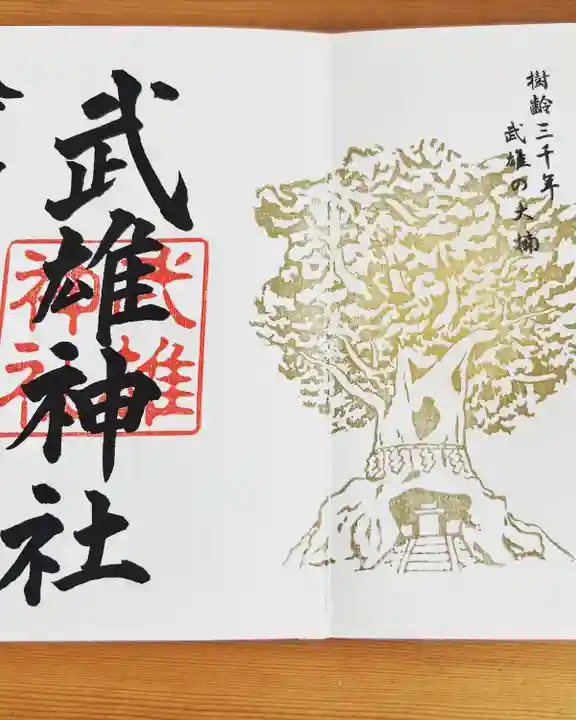 樹齢三千年
武雄の大楠
武雄神社
武雄
神社